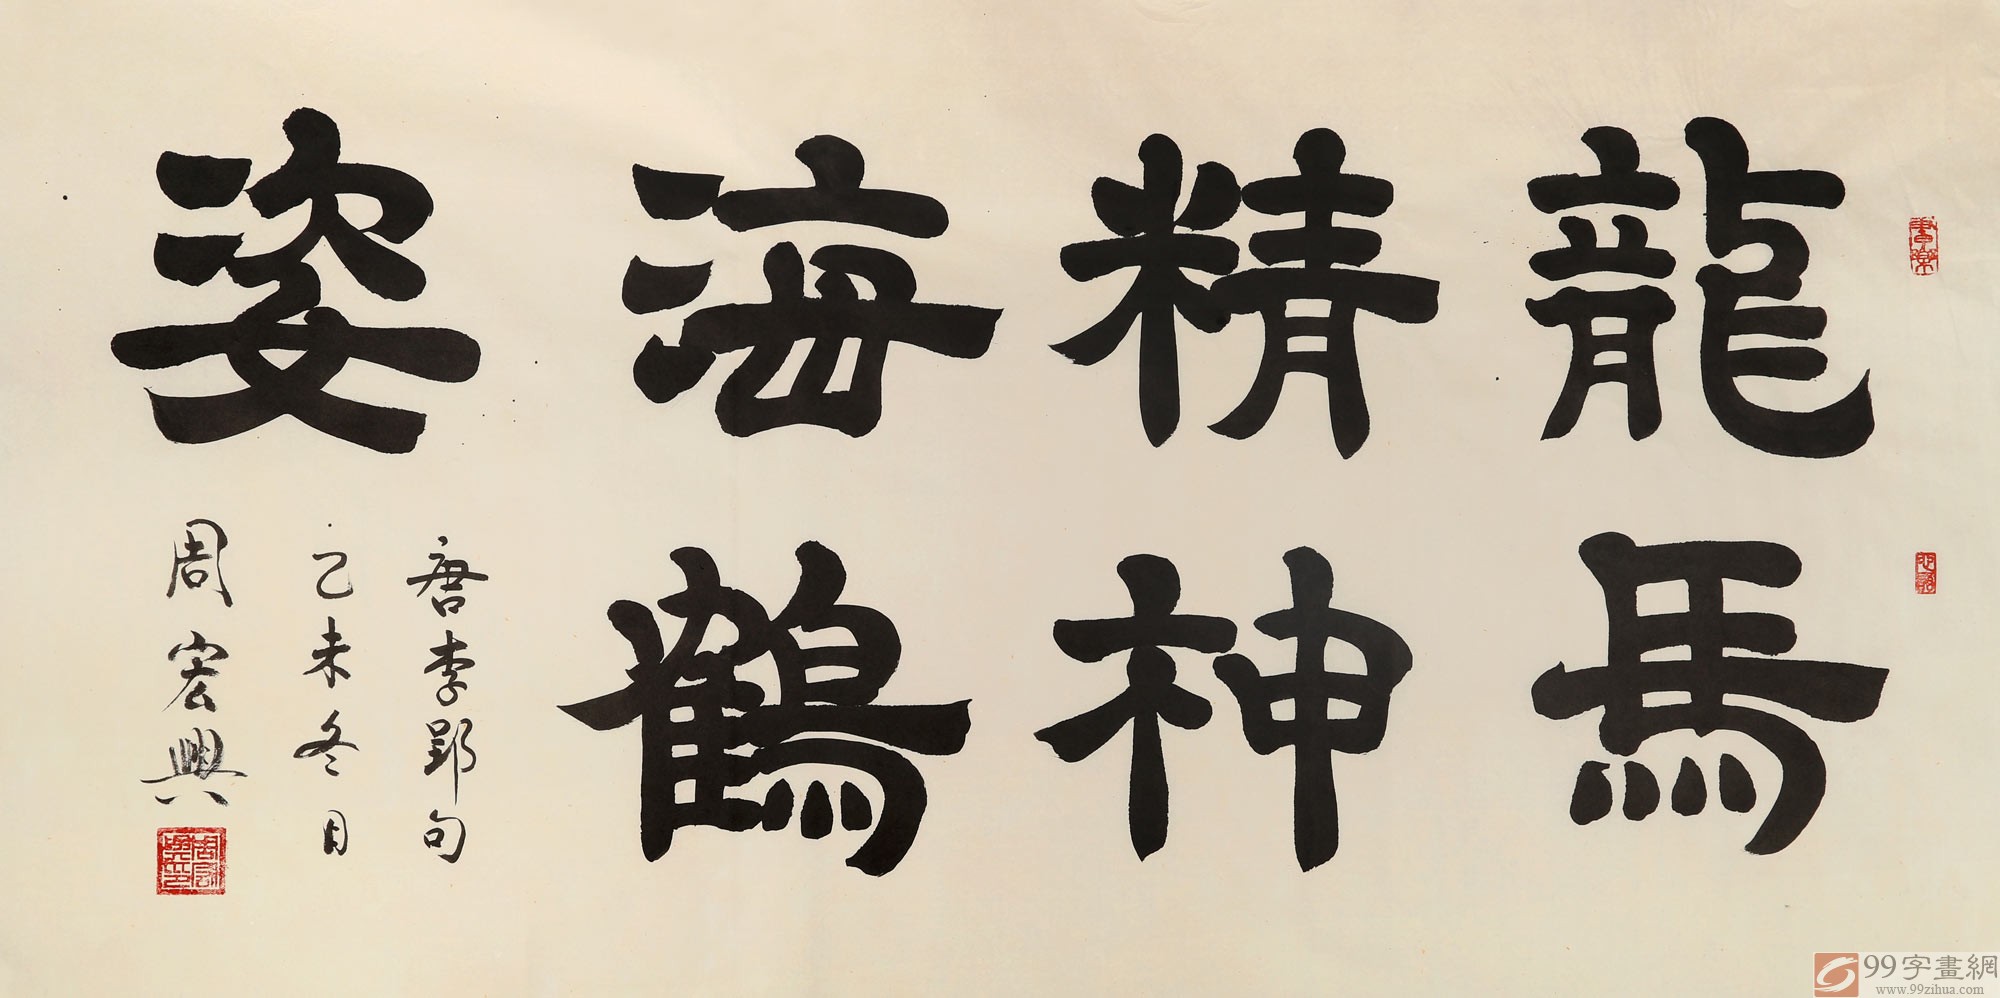 龍馬
精神
海鶴
姿
唐李郢句
乙未冬月
周宏興
99字畫網
www.99zihua.com